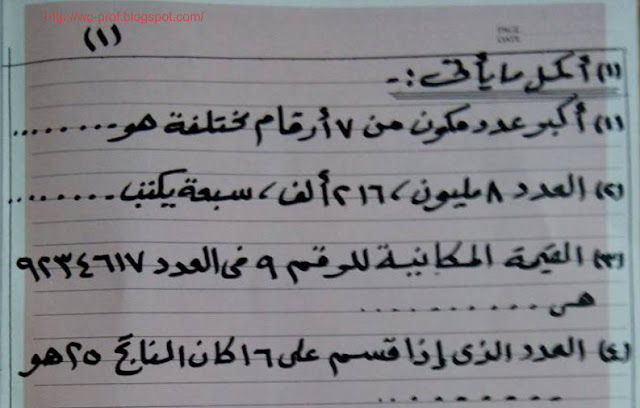 http://wo-prof.blogspot.com/
(١)
PAGE
DATE
(١) أكمل ما يأتى :-
(١) أكبر عدد مكون من ٧ أرقام مختلفة هو.........
(٢) العدد ٨ مليون ، ٢١٦ ألف ، سبعة يكتب.........
(٣) القيمة المكانية للرقم ٩ فى العدد ٩٢٣٤٦١٧
هى ...........
(٤) العدد الذى إذا قسم على ١٦ كان الناتج ٢٥ هو
..........